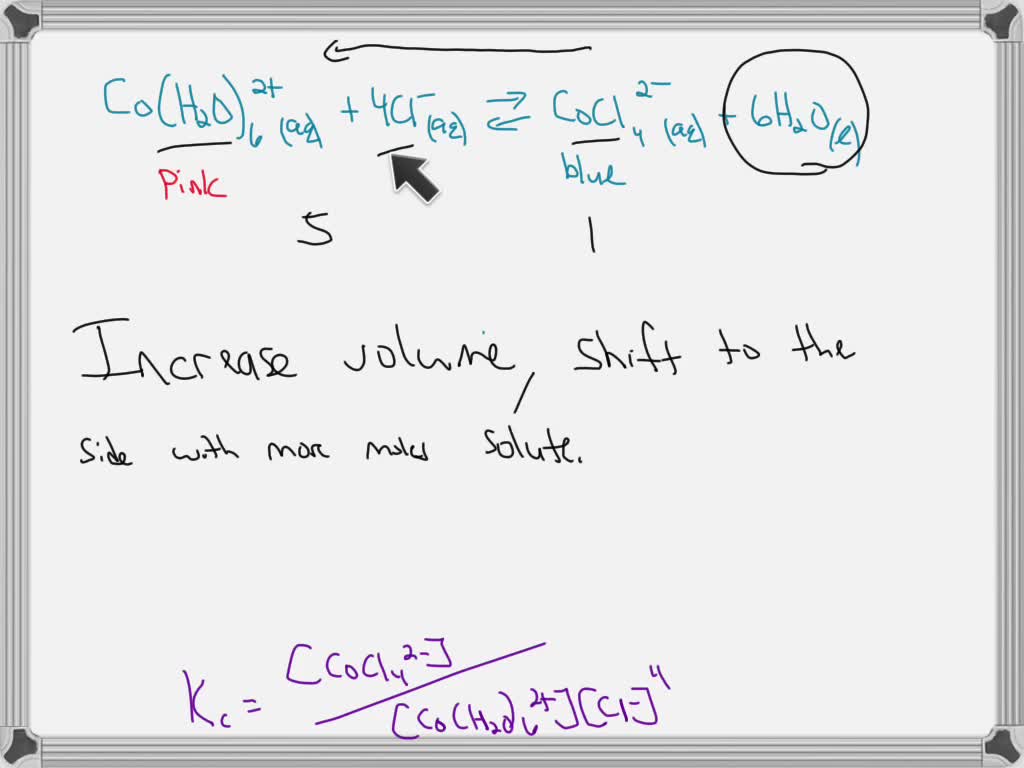 Co(H₂O)₆²⁺(aq) + 4Cl⁻(aq) ⇌ CoCl₄²⁻(aq) + 6H₂O(l)
Pink blue
5 1
Increase volume, shift to the
side with more moles solute.
Kc = [CoCl₄²⁻] / [Co(H₂O)₆²⁺][Cl⁻]⁴